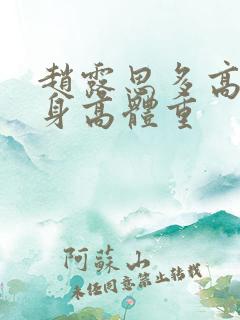 趙露思多高
身高體重
阿蘇山
未經同意禁止轉載